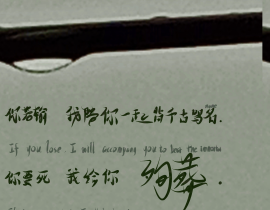 你若输 我陪你一起背千古骂名.
If you lose. I will accompany you to bear the
你要死 我给你 殉葬.